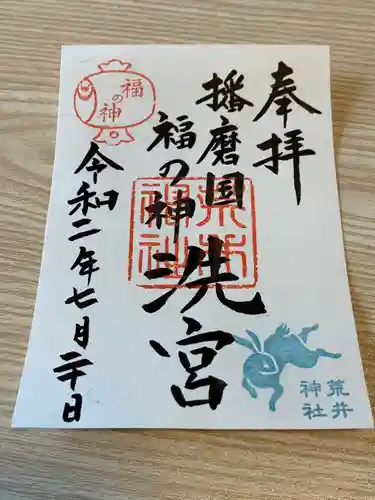 奉拝
播磨国
福の神
洗宮
令和二年七月二十日
福の神
荒井神社
荒井
神社